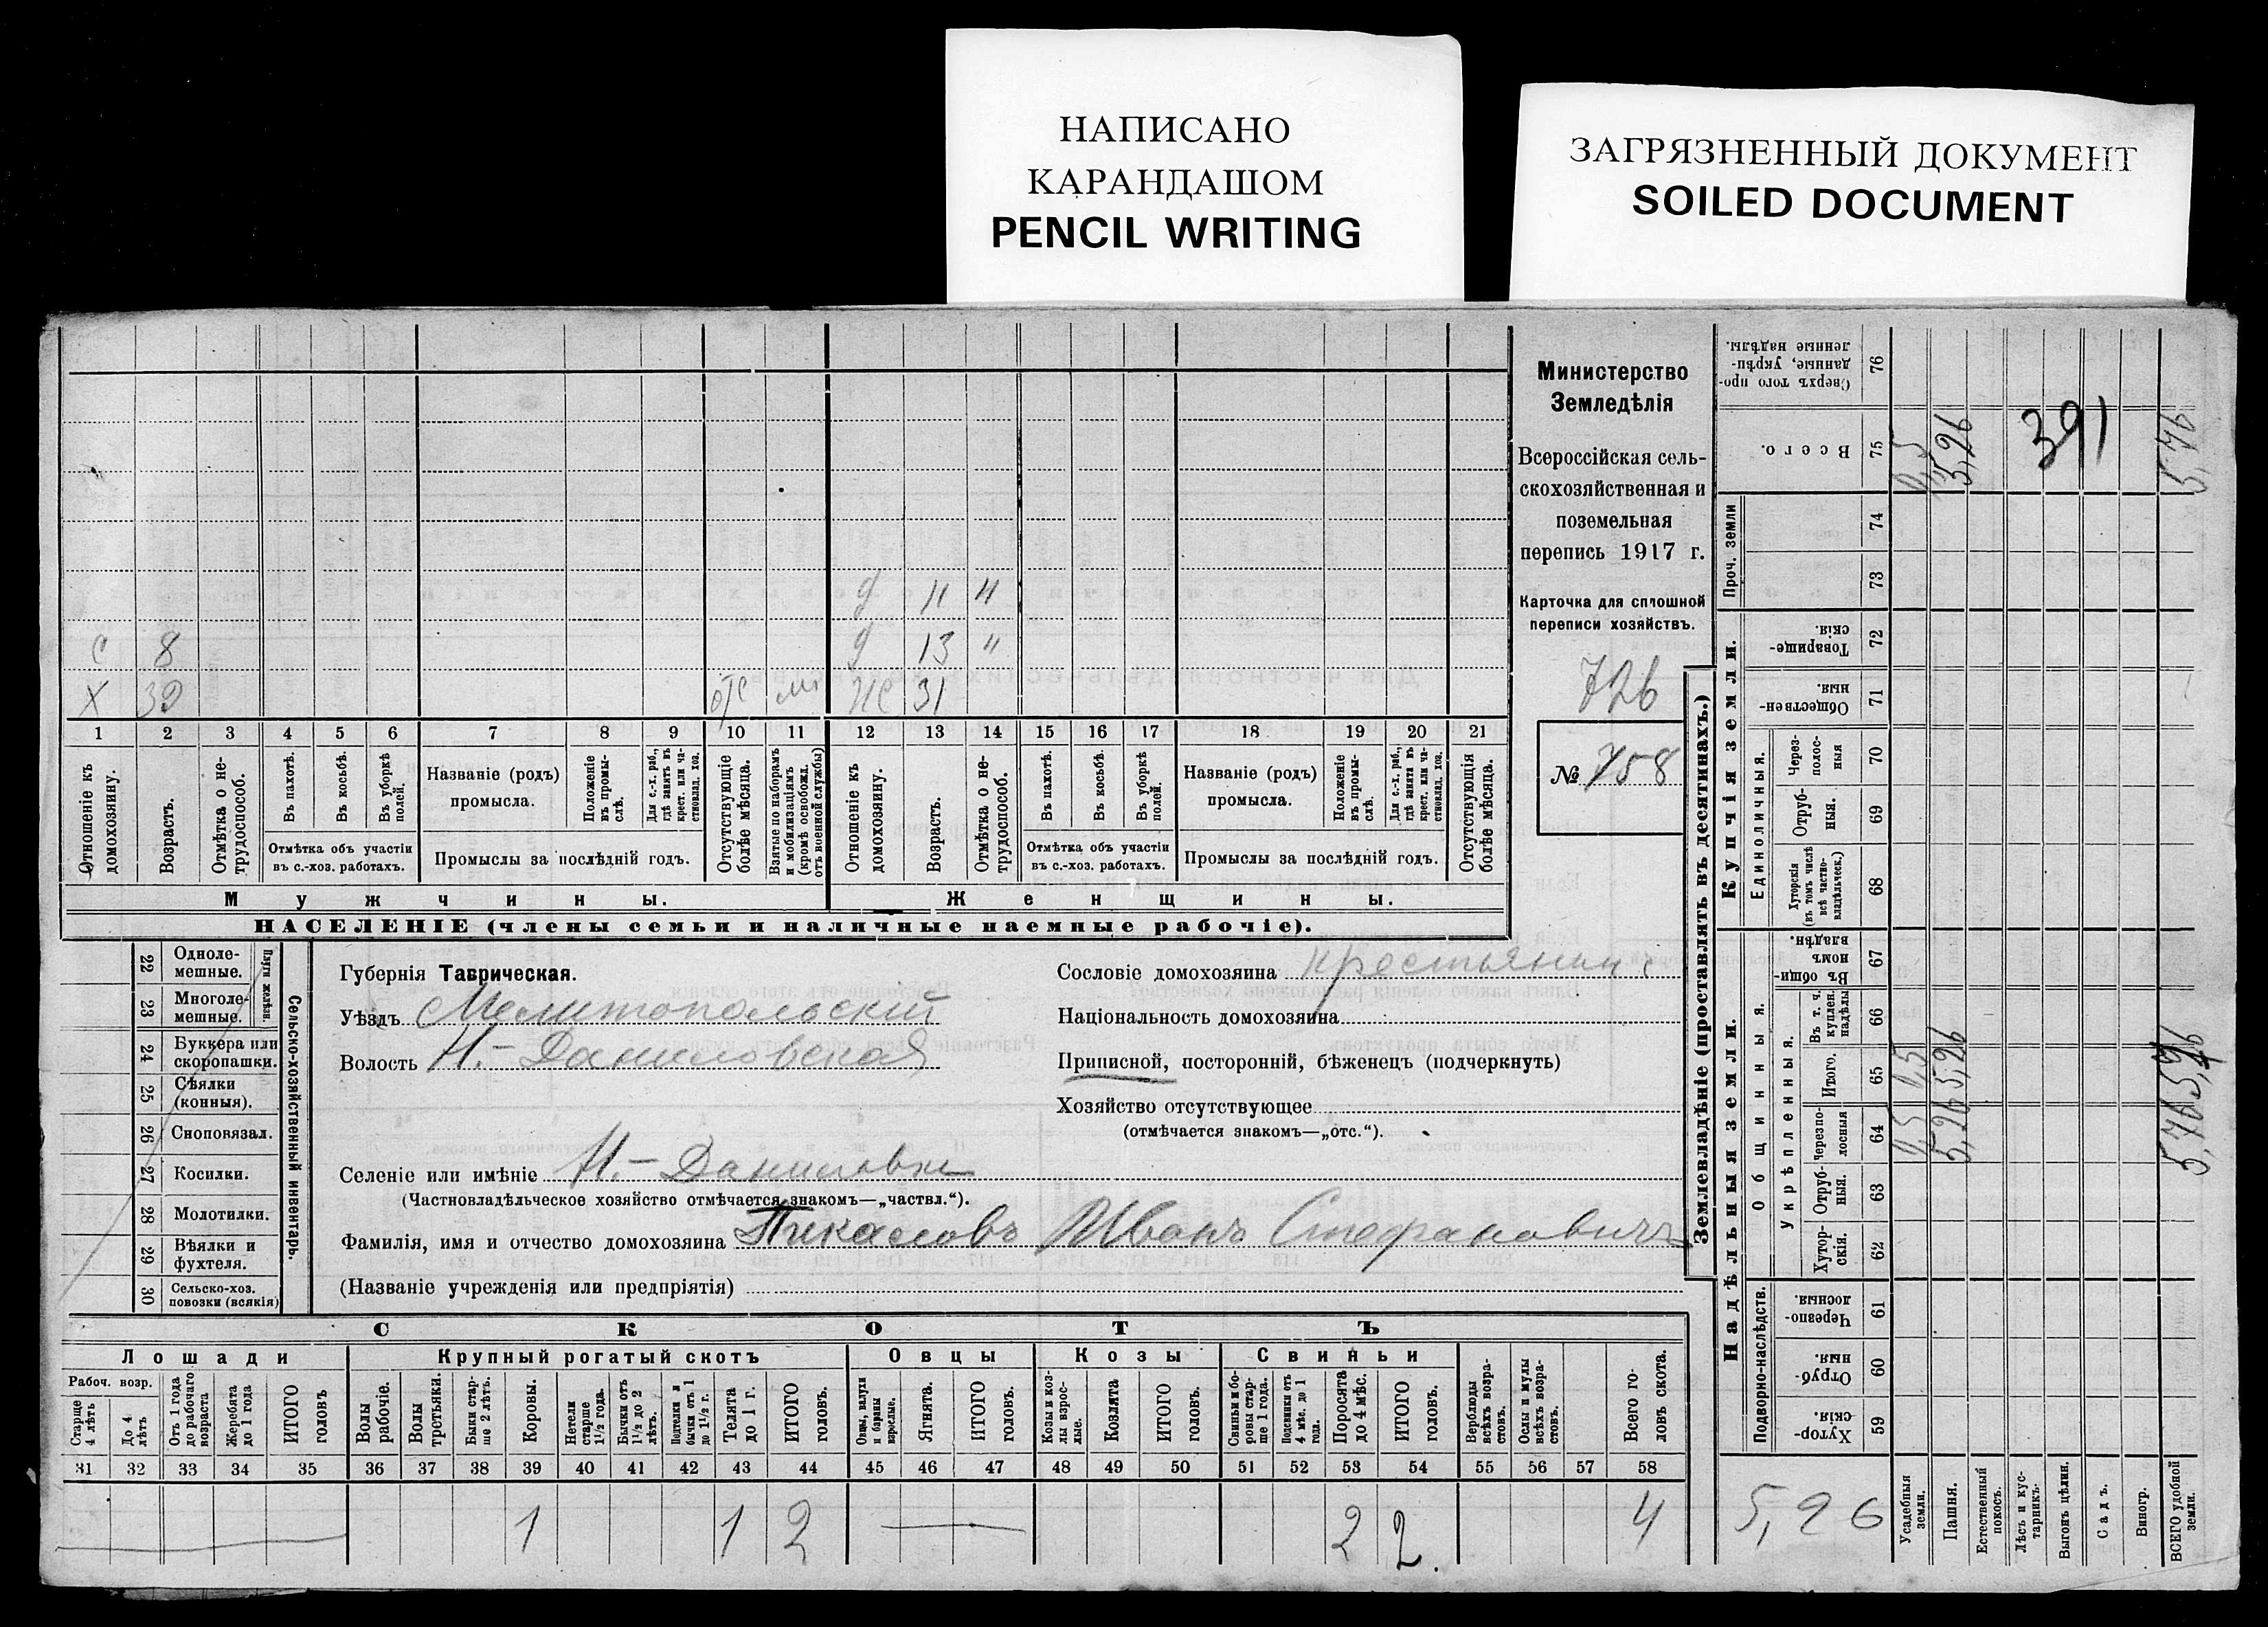 НАПИСАНО
КАРАНДАШОМ
PENCIL WRITING
ЗАГРЯЗНЕННЫЙ ДОКУМЕНТ
SOILED DOCUMENT
Д 11 "
С 8 Д 13 "
Х 39 отс ЖС 31
1 2 3 4 5 6 7 8 9 10 11 12 13 14 15 16 17 18 19 20 21
Отношеніе къ домохозяину.
Возрастъ.
Отмѣтка о не-трудоспособ.
Въ пахотѣ.
Въ косьбѣ.
Въ уборкѣ полей.
Отмѣтка объ участіи въ с.-хоз. работахъ.
Названіе (родъ) промысла.
Положеніе въ промы-слѣ.
Для с.-х. раб., гдѣ занятъ въ крест. или ча-стновлад. хоз.
Промыслы за послѣдній годъ.
Отсутствующіе болѣе мѣсяца.
Взятые по наборамъ и мобилизаціямъ (кромѣ освобожд. отъ военной службы)
Отношеніе къ домохозяину.
Возрастъ.
Отмѣтка о не-трудоспособ.
Въ пахотѣ.
Въ косьбѣ.
Въ уборкѣ полей.
Отмѣтка объ участіи въ с.-хоз. работахъ.
Названіе (родъ) промысла.
Положеніе въ промы-слѣ.
Для с.-х. раб., гдѣ занята въ крест. или ча-стновлад. хоз.
Промыслы за послѣдній годъ.
Отсутствующія болѣе мѣсяца.
Мужчины.
Женщины.
НАСЕЛЕНІЕ (члены семьи и наличные наемные рабочіе).
Министерство
Земледѣлія
Всероссійская сель-
скохозяйственная и
поземельная
перепись 1917 г.
Карточка для сплошной
переписи хозяйствъ.
726
№ 758
22 Одноле-мешные.
23 Многоле-мешные.
Плуги желѣзн.
24 Буккера или скоропашки.
25 Сѣялки (конныя).
26 Сноповязал.
27 Косилки.
28 Молотилки.
29 Вѣялки и фухтеля.
30 Сельско-хоз. повозки (всякія)
Сельско-хозяйственный инвентарь.
Губернія Таврическая.
Уѣздъ Мелитопольскій
Волость Н.-Даниловская
Селеніе или имѣніе Н.-Даниловка
(Частновладѣльческое хозяйство отмѣчается знакомъ—„частвл.“).
Фамилія, имя и отчество домохозяина Пикаловъ Иванъ Стефановичъ
(Названіе учрежденія или предпріятія)
Сословіе домохозяина крестьянин
Національность домохозяина
Приписной, посторонній, бѣженецъ (подчеркнуть)
Хозяйство отсутствующее
(отмѣчается знакомъ—„отс.“).
СКОТЪ
Лошади
Крупный рогатый скотъ
Овцы
Козы
Свиньи
Рабоч. возр.
Старше 4 лѣтъ
До 4 лѣтъ
Отъ 1 года до рабочаго возраста
Жеребята до 1 года
ИТОГО головъ
Волы рабочіе.
Волы третьяки.
Быки стар-ше 2 лѣтъ.
Коровы.
Нетели старше 1½ года.
Бычки отъ 1½ до 2 лѣтъ.
Подтелки и бычки отъ 1 до 1½ г.
Телята до 1 г.
ИТОГО головъ.
Овцы, валухи и бараны взрослые.
Ягнята.
ИТОГО головъ.
Козы и коз-лы взрос-лые.
Козлята
ИТОГО головъ.
Свиньи и бо-ровы стар-ше 1 года.
Подсвинки отъ 4 мѣс. до 1 года.
Поросята до 4 мѣс.
ИТОГО головъ.
Верблюды всѣхъ возра-стовъ.
Ослы и мулы всѣхъ возра-стовъ.
Всего го-ловъ скота.
31 32 33 34 35 36 37 38 39 40 41 42 43 44 45 46 47 48 49 50 51 52 53 54 55 56 57 58
1 1 2 2 2. 4
Землевладѣніе (проставлять въ десятинахъ.)
Сверхъ того про-данные, укрѣп-ленные надѣлы. 76
Всего. 75 0,5 5,26 5,76
391
Проч. земли 74
73
Купчія земли.
Товарище-скія. 72
Обществен-ныя. 71
Единоличныя.
Через-полос-ныя 70
Отруб-ныя. 69
Хуторскія (въ томъ числѣ всѣ частно-владѣльческ.) 68
Надѣльныя земли.
Общинныя.
Въ общи-номъ владѣн. 67
Укрѣпленныя.
Въ т. ч. куплен. надѣлы 66
Итого. 65 0,5 5,26 5,76
Черезпо-лосныя 64 0,5 5,26 5,76
Отруб-ныя. 63
Хутор-скія. 62
Подворно-наслѣдств.
Черезпо-лосныя. 61
Отруб-ныя. 60
Хутор-скія. 59
5,26
Усадебныя земли.
Пашня.
Естественный покосъ.
Лѣсъ и кус-тарникъ.
Выгонъ цѣлин.
Садъ.
Виногр.
ВСЕГО удобной земли.